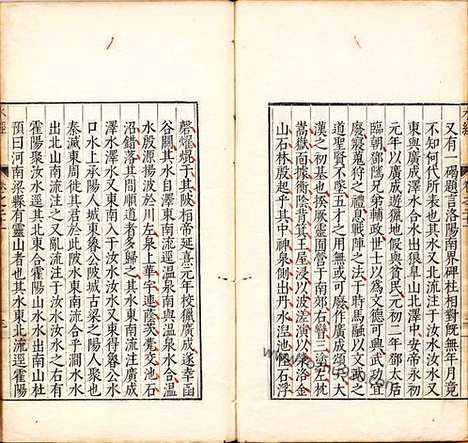 又東有一碣題言洛陽南界碑杜側並無年月竟
不知何代所表也其水又北流注于汝水汝水又
東與廣成澤水合水出狼臯山北澤中安帝永初
元年以廣成遊獵地假與貧民元初二年鄧太居
臨朝鄧騭兄弟輔政世士以爲文德可興武功宜
廢寢蒐狩之禮息戰陣之法于時馬融以文武之
道聖賢不墜五才之用無或可廢作廣成頌大
漢之初基也揆厥靈囿營于南郊右矕三塗左枕
嵩嶽面據衡陰背箕王屋浸以波溠演以滎洛金
山石林殷起乎其中神泉側出丹水涅池怪石浮
磬燿焜于其陂桓帝延熹元年校獵廣成遂幸函
谷關其水自澤東南流逕溫泉南與溫泉水合溫
水殷源揚波於川左泉上華宇連蔭茨甍交池石
沼錯落其間順道者多歸之其水東南流注廣成
澤水澤水又東南入于汝水汝水又東得魯公水
口水上承陽人城東魯公陂城古梁之陽人聚也
秦滅東周徙其君於此陂水東南流合乎澗水水
出北山南流注之又亂流注于汝水汝水之右有
霍陽聚汝水逕其北東合霍陽山水水出南山杜
預曰河南梁縣有霍山者也其水東北流逕霍陽